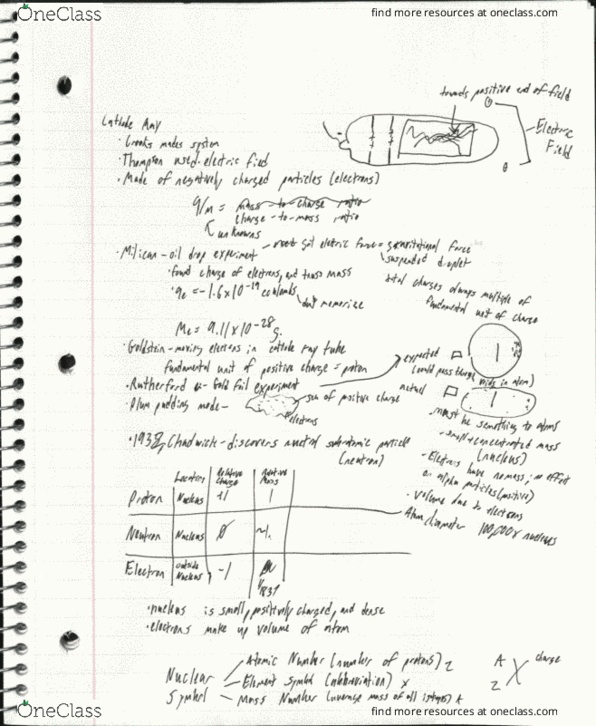 OneClass
find more resources at oneclass.com
towards positive end of field
Electric
Field
Cathode Ray
· Crooks makes system
· Thompson used electric field
· Made of negatively charged particles (electrons)
q/m = mass to charge ratio
charge-to-mass ratio
unknowns
· Milican - oil drop experiment - electric force = gravitational force
suspended droplet
· found charge of electrons, and mass
· qe = -1.6x10^-19 coulombs
don't memorize
total charges always multiple of
fundamental unit of charge
Me = 9.11x10^-28 g
· Goldstein - moving electrons in cathode ray tube
fundamental unit of positive charge = proton
· Rutherford Gold foil experiment
expected
(could pass through in atom)
actual
· Plum pudding mode - sea of positive charge
electrons
must be something to atoms
- small + concentrated mass
(nucleus)
- Electrons have no mass; no effect
on alpha particles (positive)
· Volume due to electrons
Atom diameter 100,000x nucleus
· 1932, Chadwick - discovers neutral subatomic particle
(neutron)
Location Relative Charge Relative Mass
Proton Nucleus +1 1
Neutron Nucleus Ø ~1
Electron outside Nucleus -1 1/1837
· nucleus is small, positively charged, and dense
· electrons make up volume of atom
Nuclear
Symbol
Atomic Number (number of protons) Z
Element Symbol (abbreviation) X
Mass Number (average mass of all isotopes) A
A
Z
X
charge
OneClass
find more resources at oneclass.com